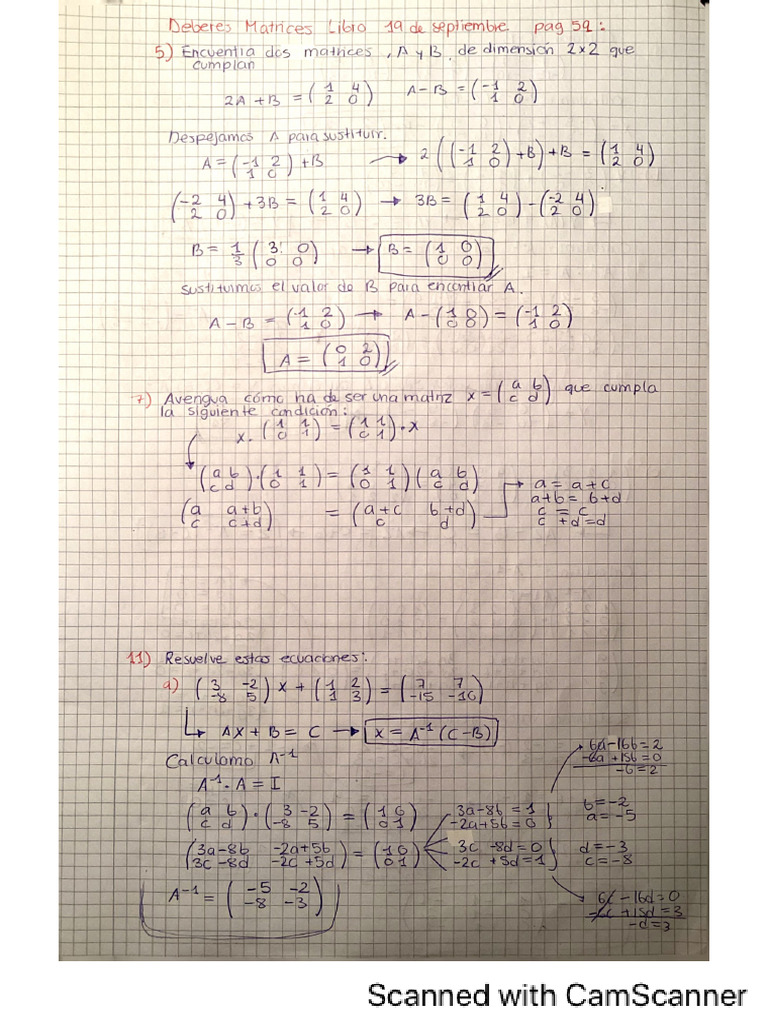 Deberes Matrices Libro 19 de septiembre pag 59:
5) Encuentra dos matrices, A y B, de dimensión 2x2 que
cumplan
2A + B = (1 4 / 2 0)   A - B = (-1 2 / 1 0)
Despejamos A para sustituir.
A = (-1 2 / 1 0) + B → 2((-1 2 / 1 0) + B) + B = (1 4 / 2 0)
(-2 4 / 2 0) + 3B = (1 4 / 2 0) → 3B = (1 4 / 2 0) - (-2 4 / 2 0)
B = 1/3 (3 0 / 0 0) → B = (1 0 / 0 0)
sustituimos el valor de B para encontrar A.
A - B = (-1 2 / 1 0) → A - (1 0 / 0 0) = (-1 2 / 1 0)
A = (0 2 / 1 0)
7) Averigua cómo ha de ser una matriz x = (a b / c d) que cumpla
la siguiente condición:
x · (1 1 / 0 1) = (1 1 / 0 1) · x
(a b / c d) · (1 1 / 0 1) = (1 1 / 0 1)(a b / c d)
(a a+b / c c+d) = (a+c b+d / c d)
a = a+c
a+b = b+d
c = c
c+d = d
11) Resuelve estas ecuaciones:
a) (3 -2 / -8 5) x + (1 2 / 1 3) = (7 7 / -15 -16)
AX + B = C → x = A⁻¹ (C - B)
Calculamo A⁻¹
A⁻¹ · A = I
(a b / c d) · (3 -2 / -8 5) = (1 0 / 0 1)
(3a-8b -2a+5b / 3c-8d -2c+5d) = (1 0 / 0 1)
3a-8b = 1
-2a+5b = 0
3c -8d = 0
-2c +5d = 1
6a-16b = 2
-6a+15b = 0
-b = 2
b = -2
a = -5
d = -3
c = -8
6c - 16d = 0
-6c +15d = 3
-d = 3
A⁻¹ = (-5 -2 / -8 -3)
Scanned with CamScanner